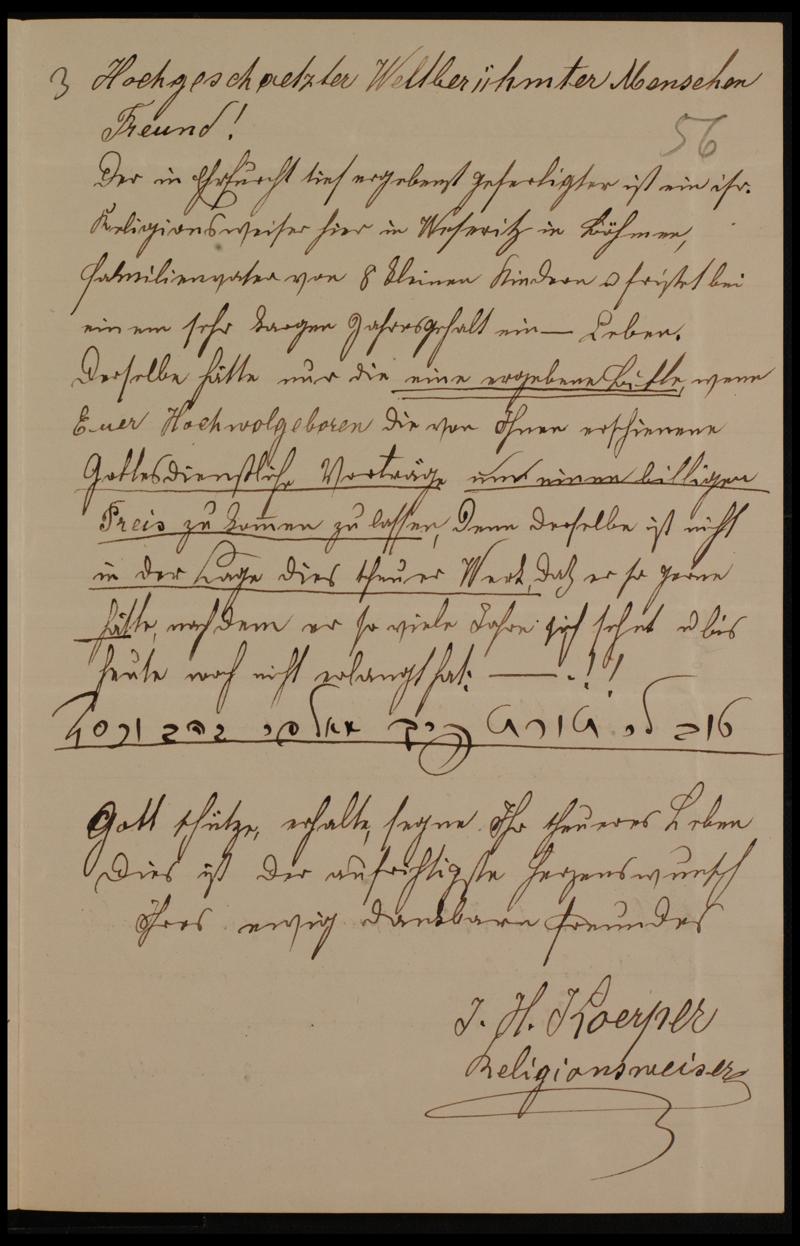 3 Hochgeschaetzter Weltberühmter Menschen
Freund!
56
Der in Ehrfurcht tief ergebenst gefertigter ist ein isr.
Religionsweiser hier in Weseritz in Böhmen,
Familienvater von 8 kleinen Kindern u fristet bei
einem sehr kargen Jahresgehalt ein — Leben.
Derselbe hätte nur die eine ergebene Bitte, wenn
Euer Hochwolgeboren die von Ihnen erschienene
Gottesdienstliche Vorträge um einen billigen
Preis zu kom̄en zu lassen, Denn derselbe ist nicht
in der Lage dies theuer Werk, daß er so gerne
hätte, nachdem er so viele Jahre sich sehnt u bis
heute noch nicht erlangt hat: — . ! !
טוב לי תורת פיך מאלפי זהב וכסף
Gott schütze, erhalte, segne Ihr theueres Leben
Dies ist der aufrichtigste Herzenswunsch
Ihres ewig dankbaren Freundes
J. H. Koerper
Religionsweiser